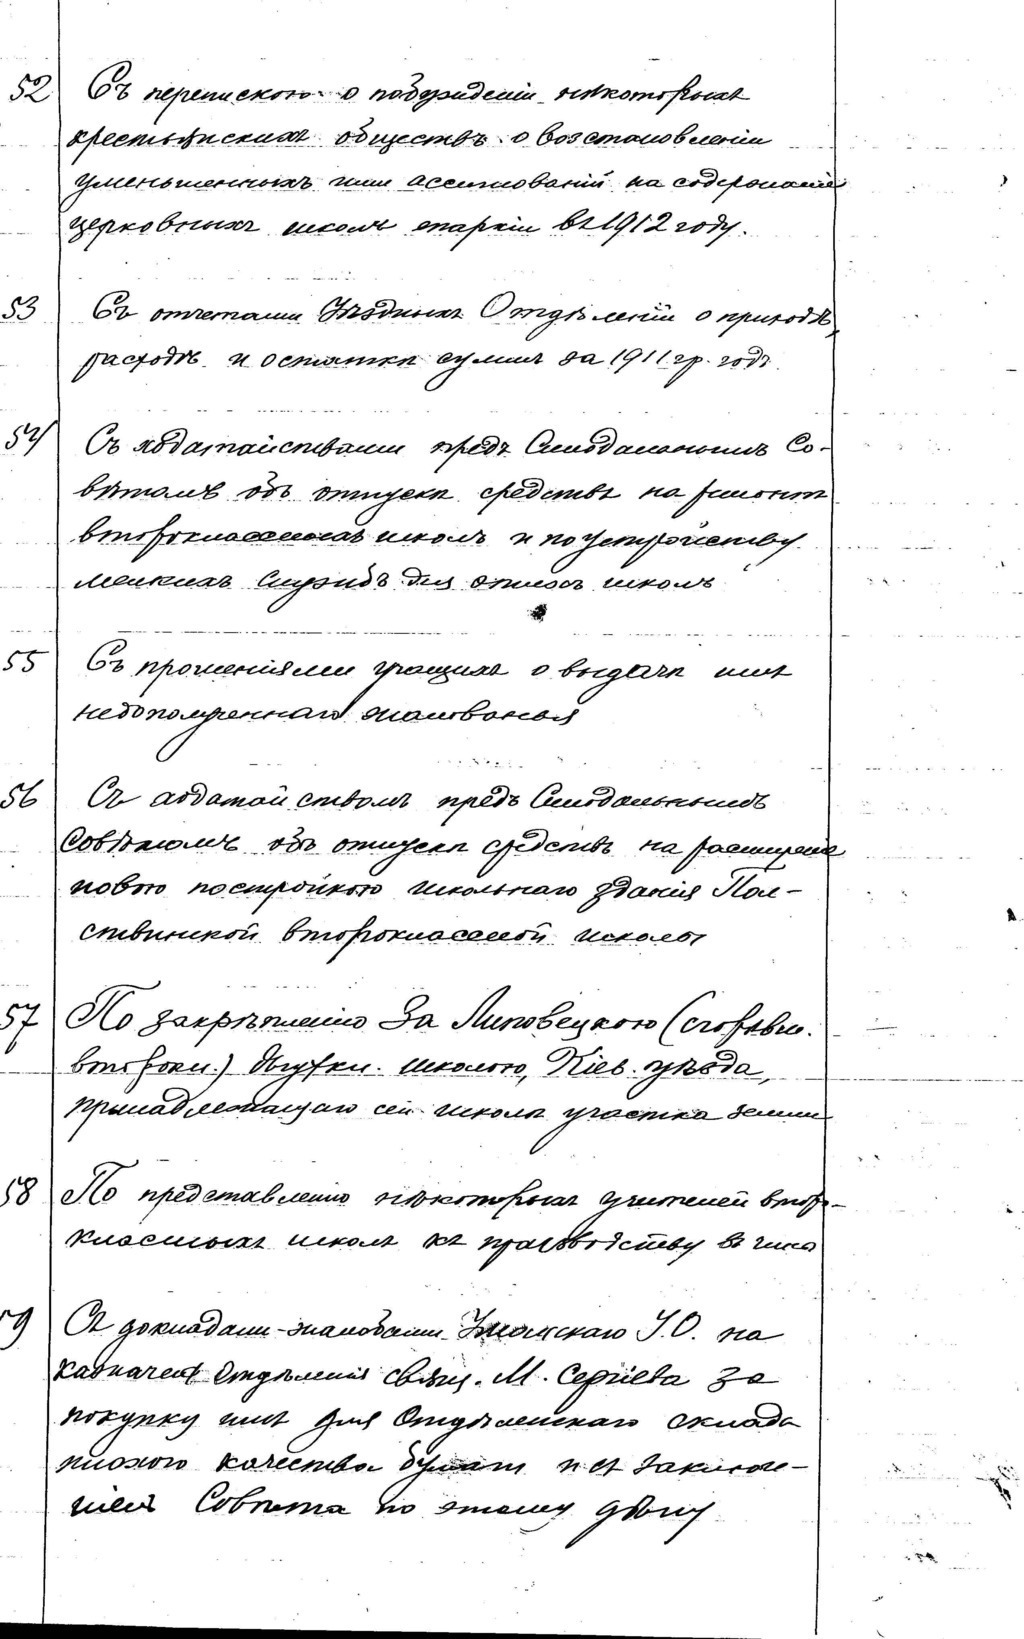 52 Съ перепискою о побужденіи нѣкоторыхъ
крестьянскихъ обществъ о возстановленіи
уменьшенныхъ ими ассигнованій на содержаніе
церковныхъ школъ епархіи въ 1912 году.
53 Съ отчетами Уѣздныхъ Отдѣленій о приходѣ,
расходѣ и остатки суммъ за 1911 гр. годъ.
54 Съ ходатайствами предъ Синодальнымъ Со-
вѣтомъ объ отпускѣ средствъ на ремонтъ
второклассныхъ школъ и по устройству
мелкихъ службъ для этихъ школъ
55 Съ прошеніями учащихъ о выдачѣ имъ
недополученнаго жалованья
56 Съ ходатайствомъ предъ Синодальнымъ
Совѣтомъ объ отпускѣ средствъ на расширеніе
новою постройкою школьнаго зданія Пол-
ствинской второклассной школы
57 По закрѣпленію за Липовецкою (
второкл.) школою, Кіев. уѣзда,
принадлежащаго сей школѣ участка земли
58 По представленію нѣкоторыхъ учителей второ-
классныхъ школъ къ производству въ чины
59 Съ докладами-жалобами Уманскаго У.О. на
казначея Отдѣленія свящ. М. Сергіева за
покупку имъ для Отдѣленскаго склада
плохого качества бумаги и съ заключе-
ніемъ Совѣта по этому дѣлу